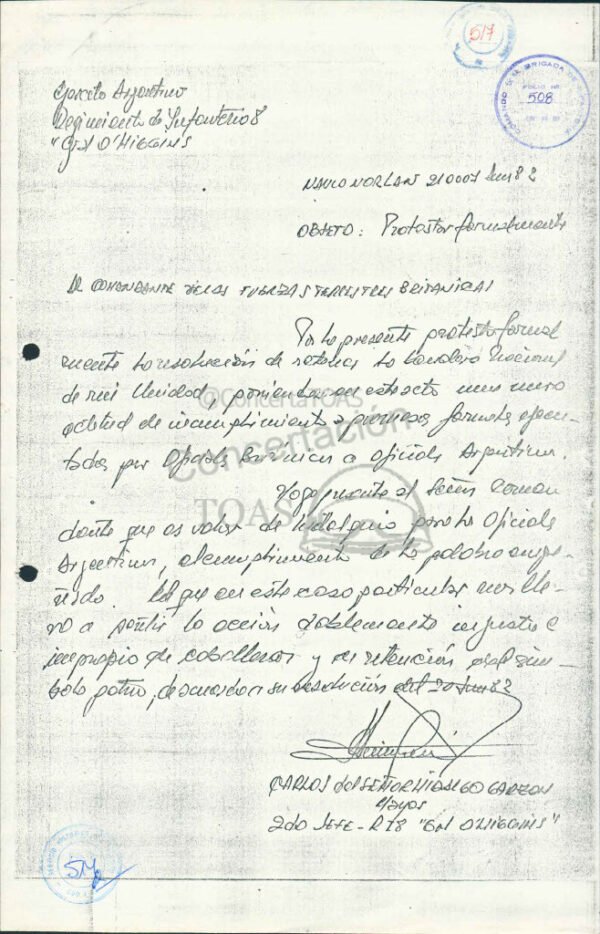 517
508
Ejército Argentino
Regimiento de Infantería 8
"Gral O'HIGGINS"
NAVIO NORLAN 210007 Jun 82
OBJETO: Protestar formalmente
Al COMANDANTE DE LAS FUERZAS TERRESTRES BRITANICAS
Por la presente protesto formal
mente la resolución de retener la bandera Nacional
de mi Unidad, poniendo en este acto una nueva
actitud de incumplimiento a promesas formales efectua
tadas por Oficiales Británicos a oficiales Argentinos.
Hago presente al Señor Coman
dante que es valor de hidalguía para los Oficiales
Argentinos, el cumplimiento de la palabra empe-
ñada. La que en este caso particular nos lle-
va a sentir la acción doblemente injusta e
impropia de caballeros y en retención del sim-
bolo patrio, de acuerdo a su resolución del 20 Jun 82
CARLOS del SEÑOR HIDALGO GARZON
Mayor
2do JEFE - RI8 "GRL O'HIGGINS"
@ConcertaTOAS
Concertación
TOAS
517